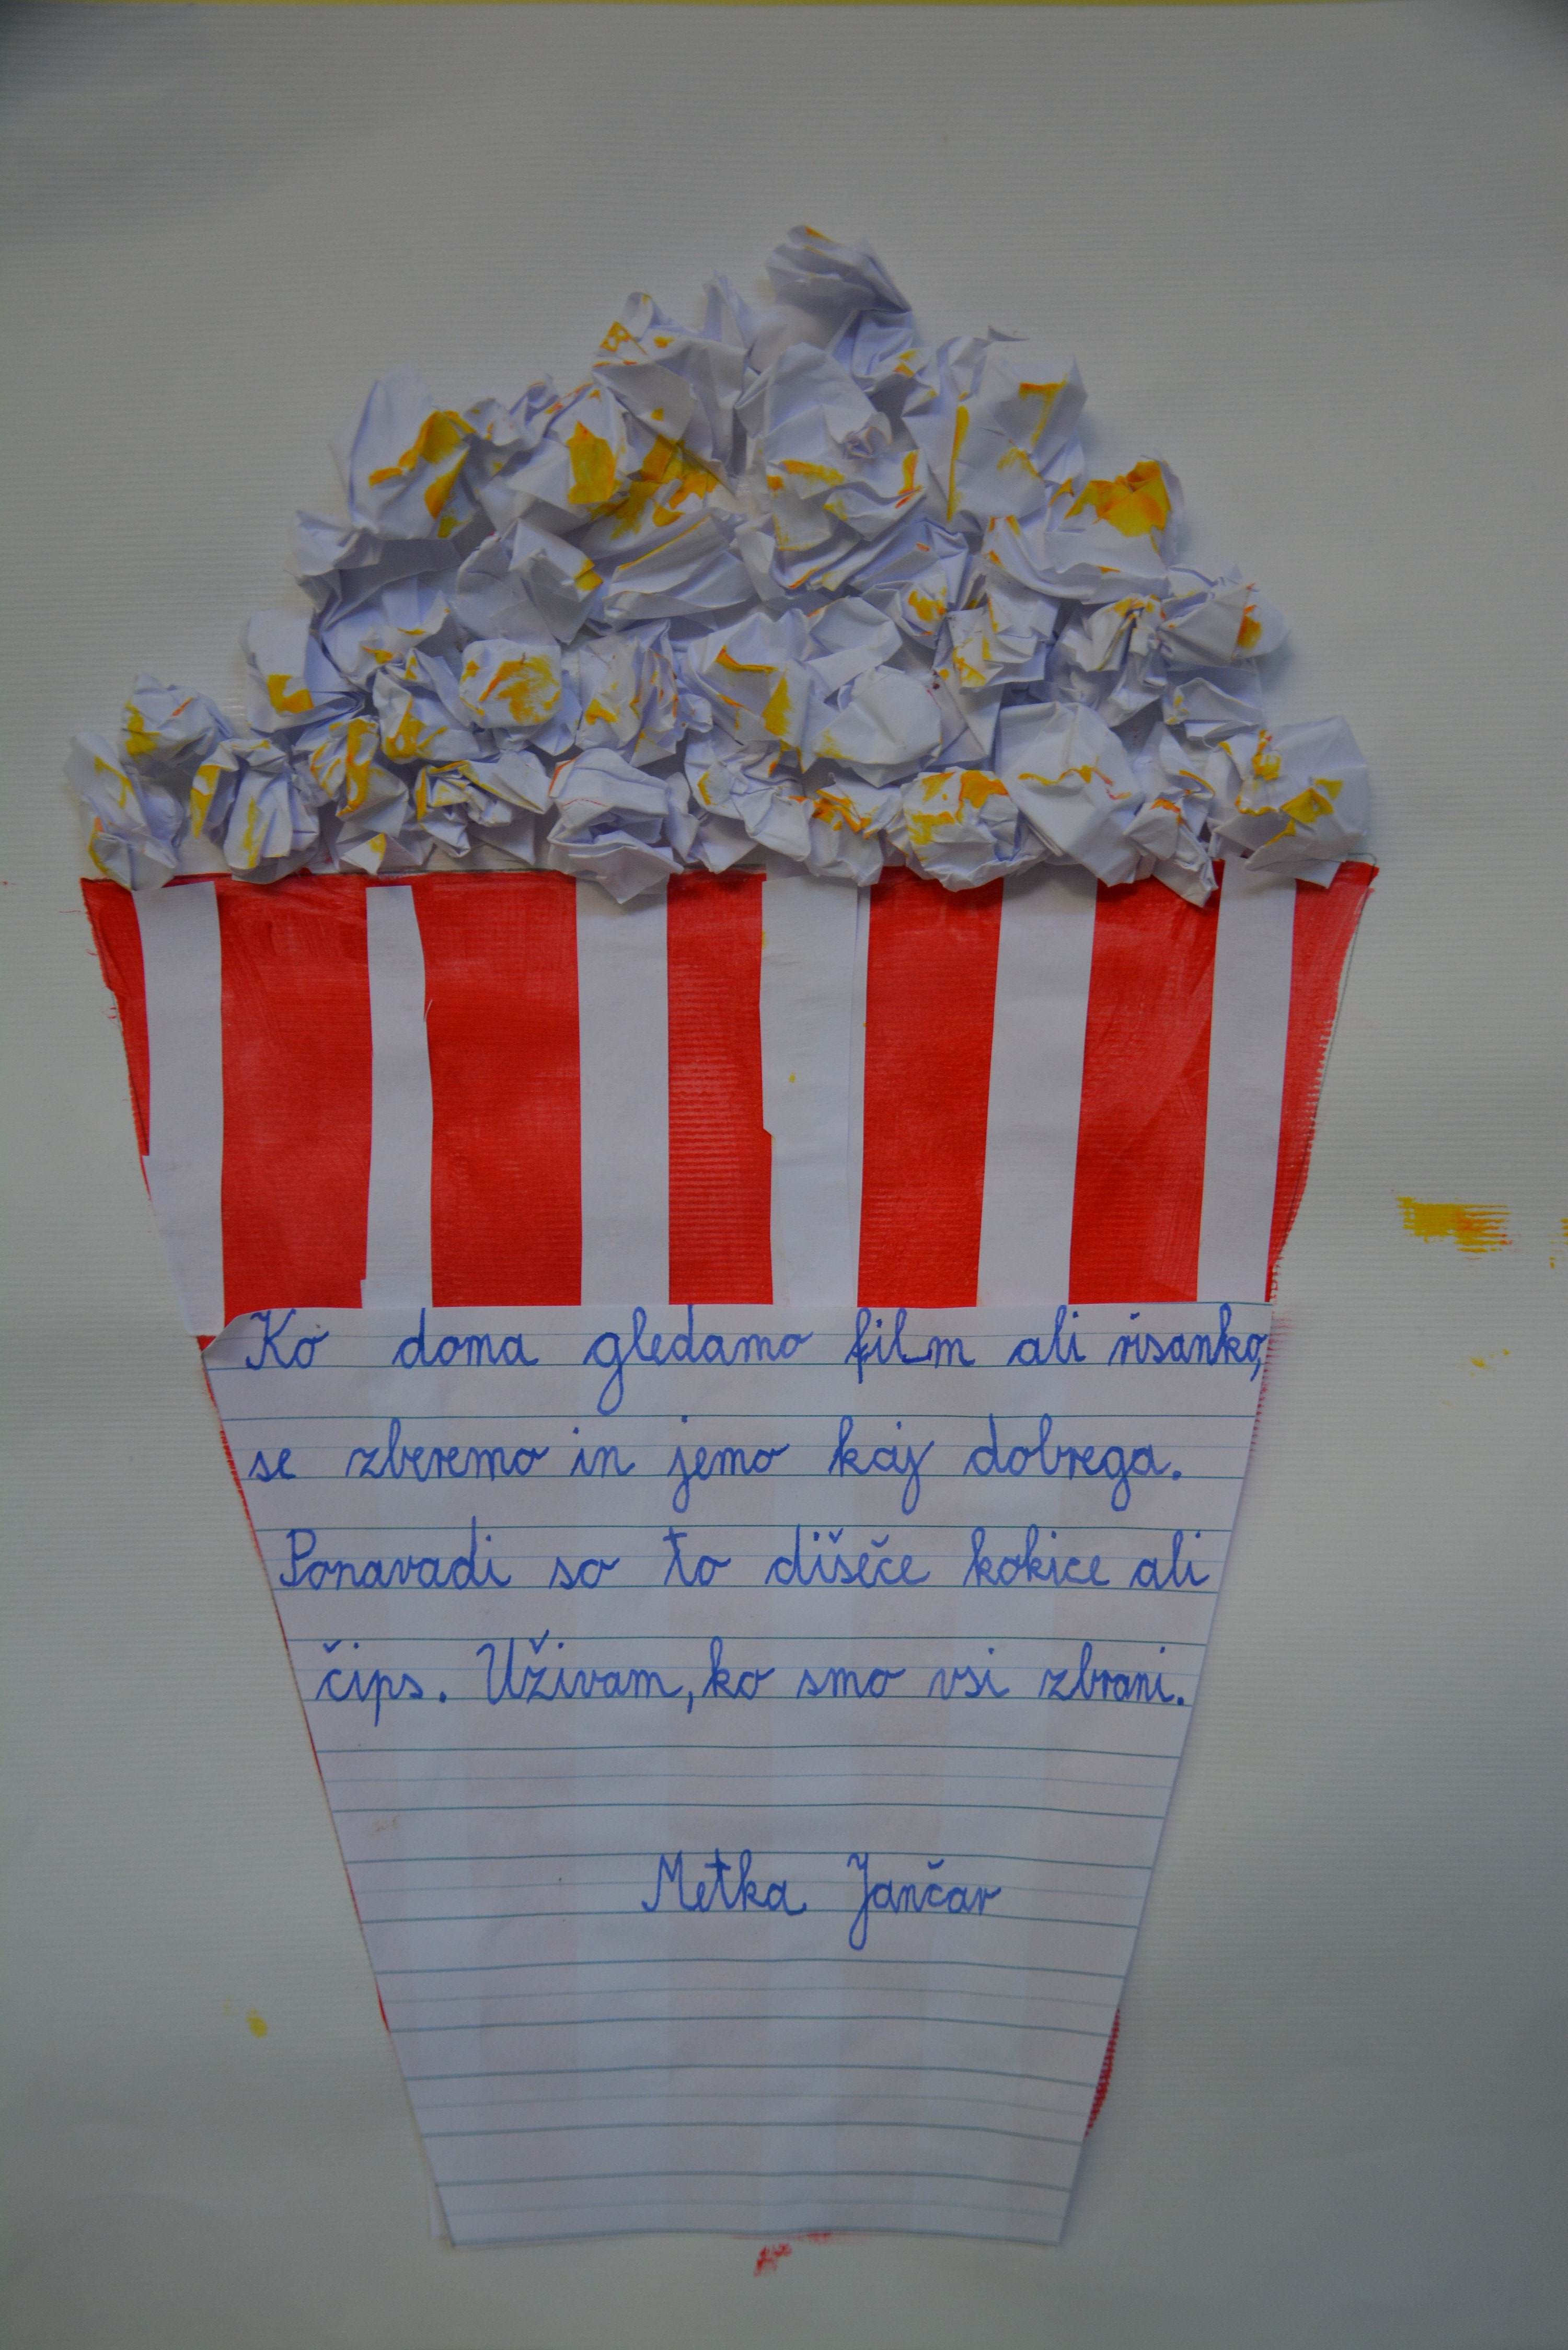 Ko doma gledamo film ali risanko,
se zberemo in jemo kaj dobrega.
Ponavadi so to dišeče kokice ali
čips. Uživam, ko smo vsi zbrani.
Metka Jančar